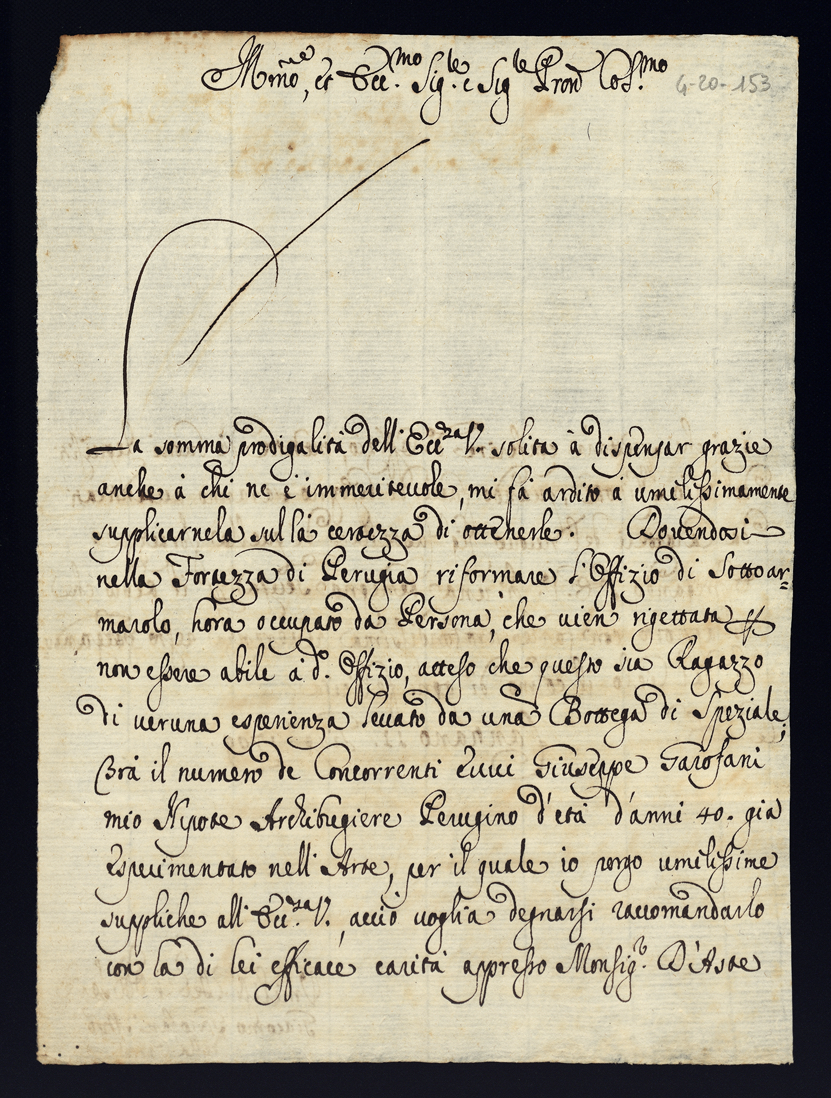 Illmo, et Ecc.mo Sig.re e Sig.re Pron Col.mo 4-20-153
La somma prodigalità dell'Ecc.za V. solita à dispensar grazie
anche à chi ne è immeritevole, mi fà ardito à umilissimamente
supplicarnela sulla certezza di ottenerle. Dovendosi
nella Fortezza di Perugia riformare l'Offizio di Sottoar=
marolo, hora occupato da Persona, che vien rigettata
non essere abile à d.o Offizio, atteso che questo sia Ragazzo
di veruna esperienza levato da una Bottega di Speziale;
Trà il numero de Concorrenti evvi Giuseppe Garofani
mio Nipote Archibugiere Perugino d'età d'anni 40. già
esperimentato nell'Arte, per il quale io porgo umilissime
suppliche all'Ecc.za V., acciò voglia degnarsi raccomandarlo
con la di lei efficace carità appresso Monsig.r D'Aste